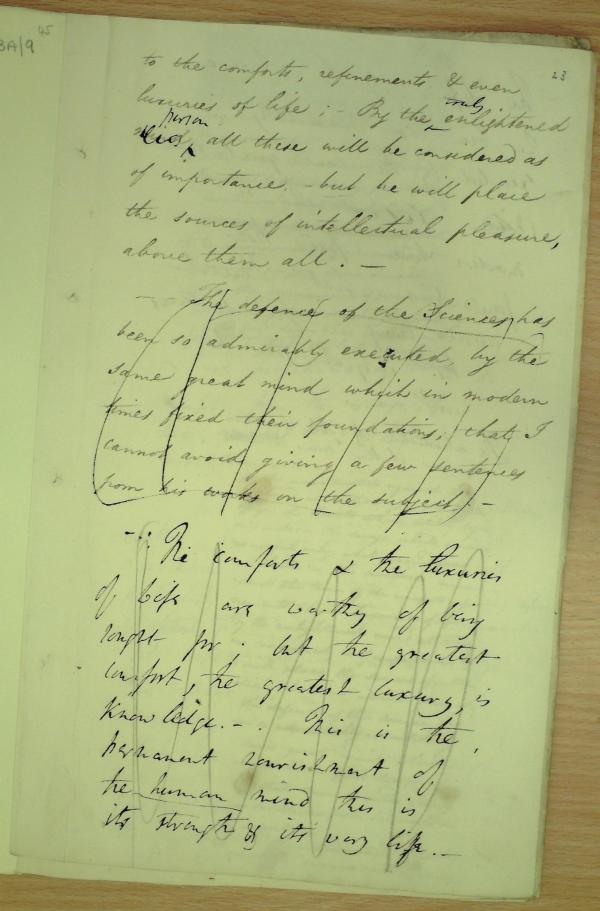 3A/9
45
23
to the comforts, refinements & even
luxuries of life ; - By the truly enlightened
person all these will be considered as
of importance. - but he will place
the sources of intellectual pleasure,
above them all. -
- The defence of the Sciences, has
been so admirably executed, by the
same great mind which in modern
times fixed their foundations; that I
cannot avoid giving a few sentences
from his works on the subject. -
-: The comforts & the luxuries
of life are worthy of being
sought for ; but the greatest
comfort, the greatest luxury, is
knowledge. - . This is the
permanent nourishment of
the human mind this is
its strength & its very life. -